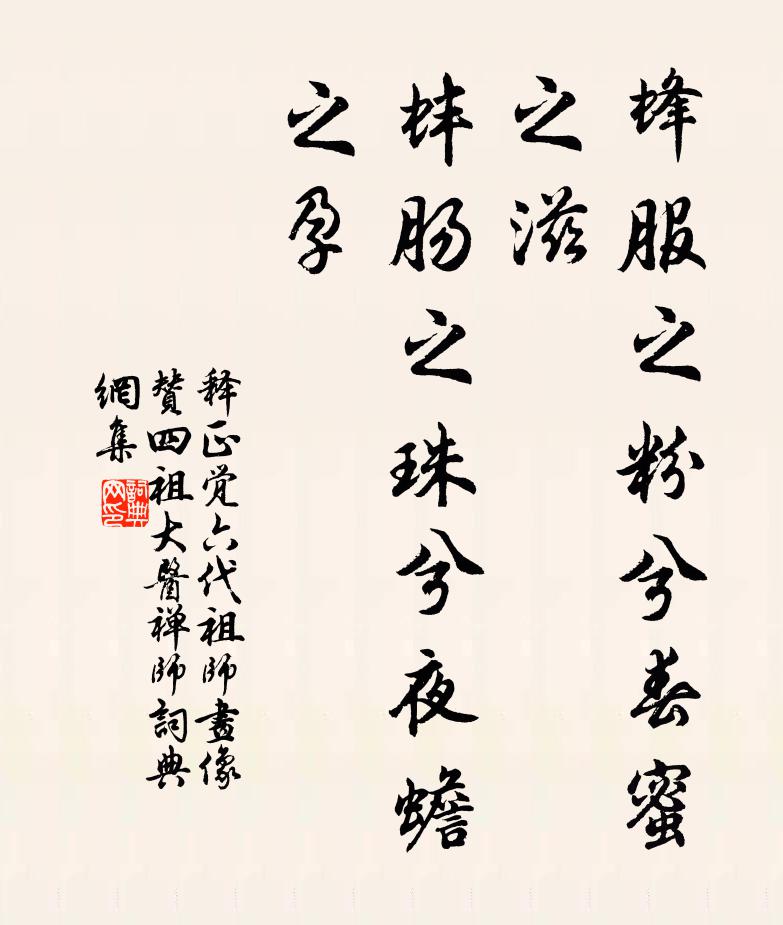 蜂服之粉兮春蜜
之滋
蚌肠之珠兮夜蟾
之孕
释正觉六代祖师畫像
赞四祖大醫禅师詞典
網集
詞典
网印